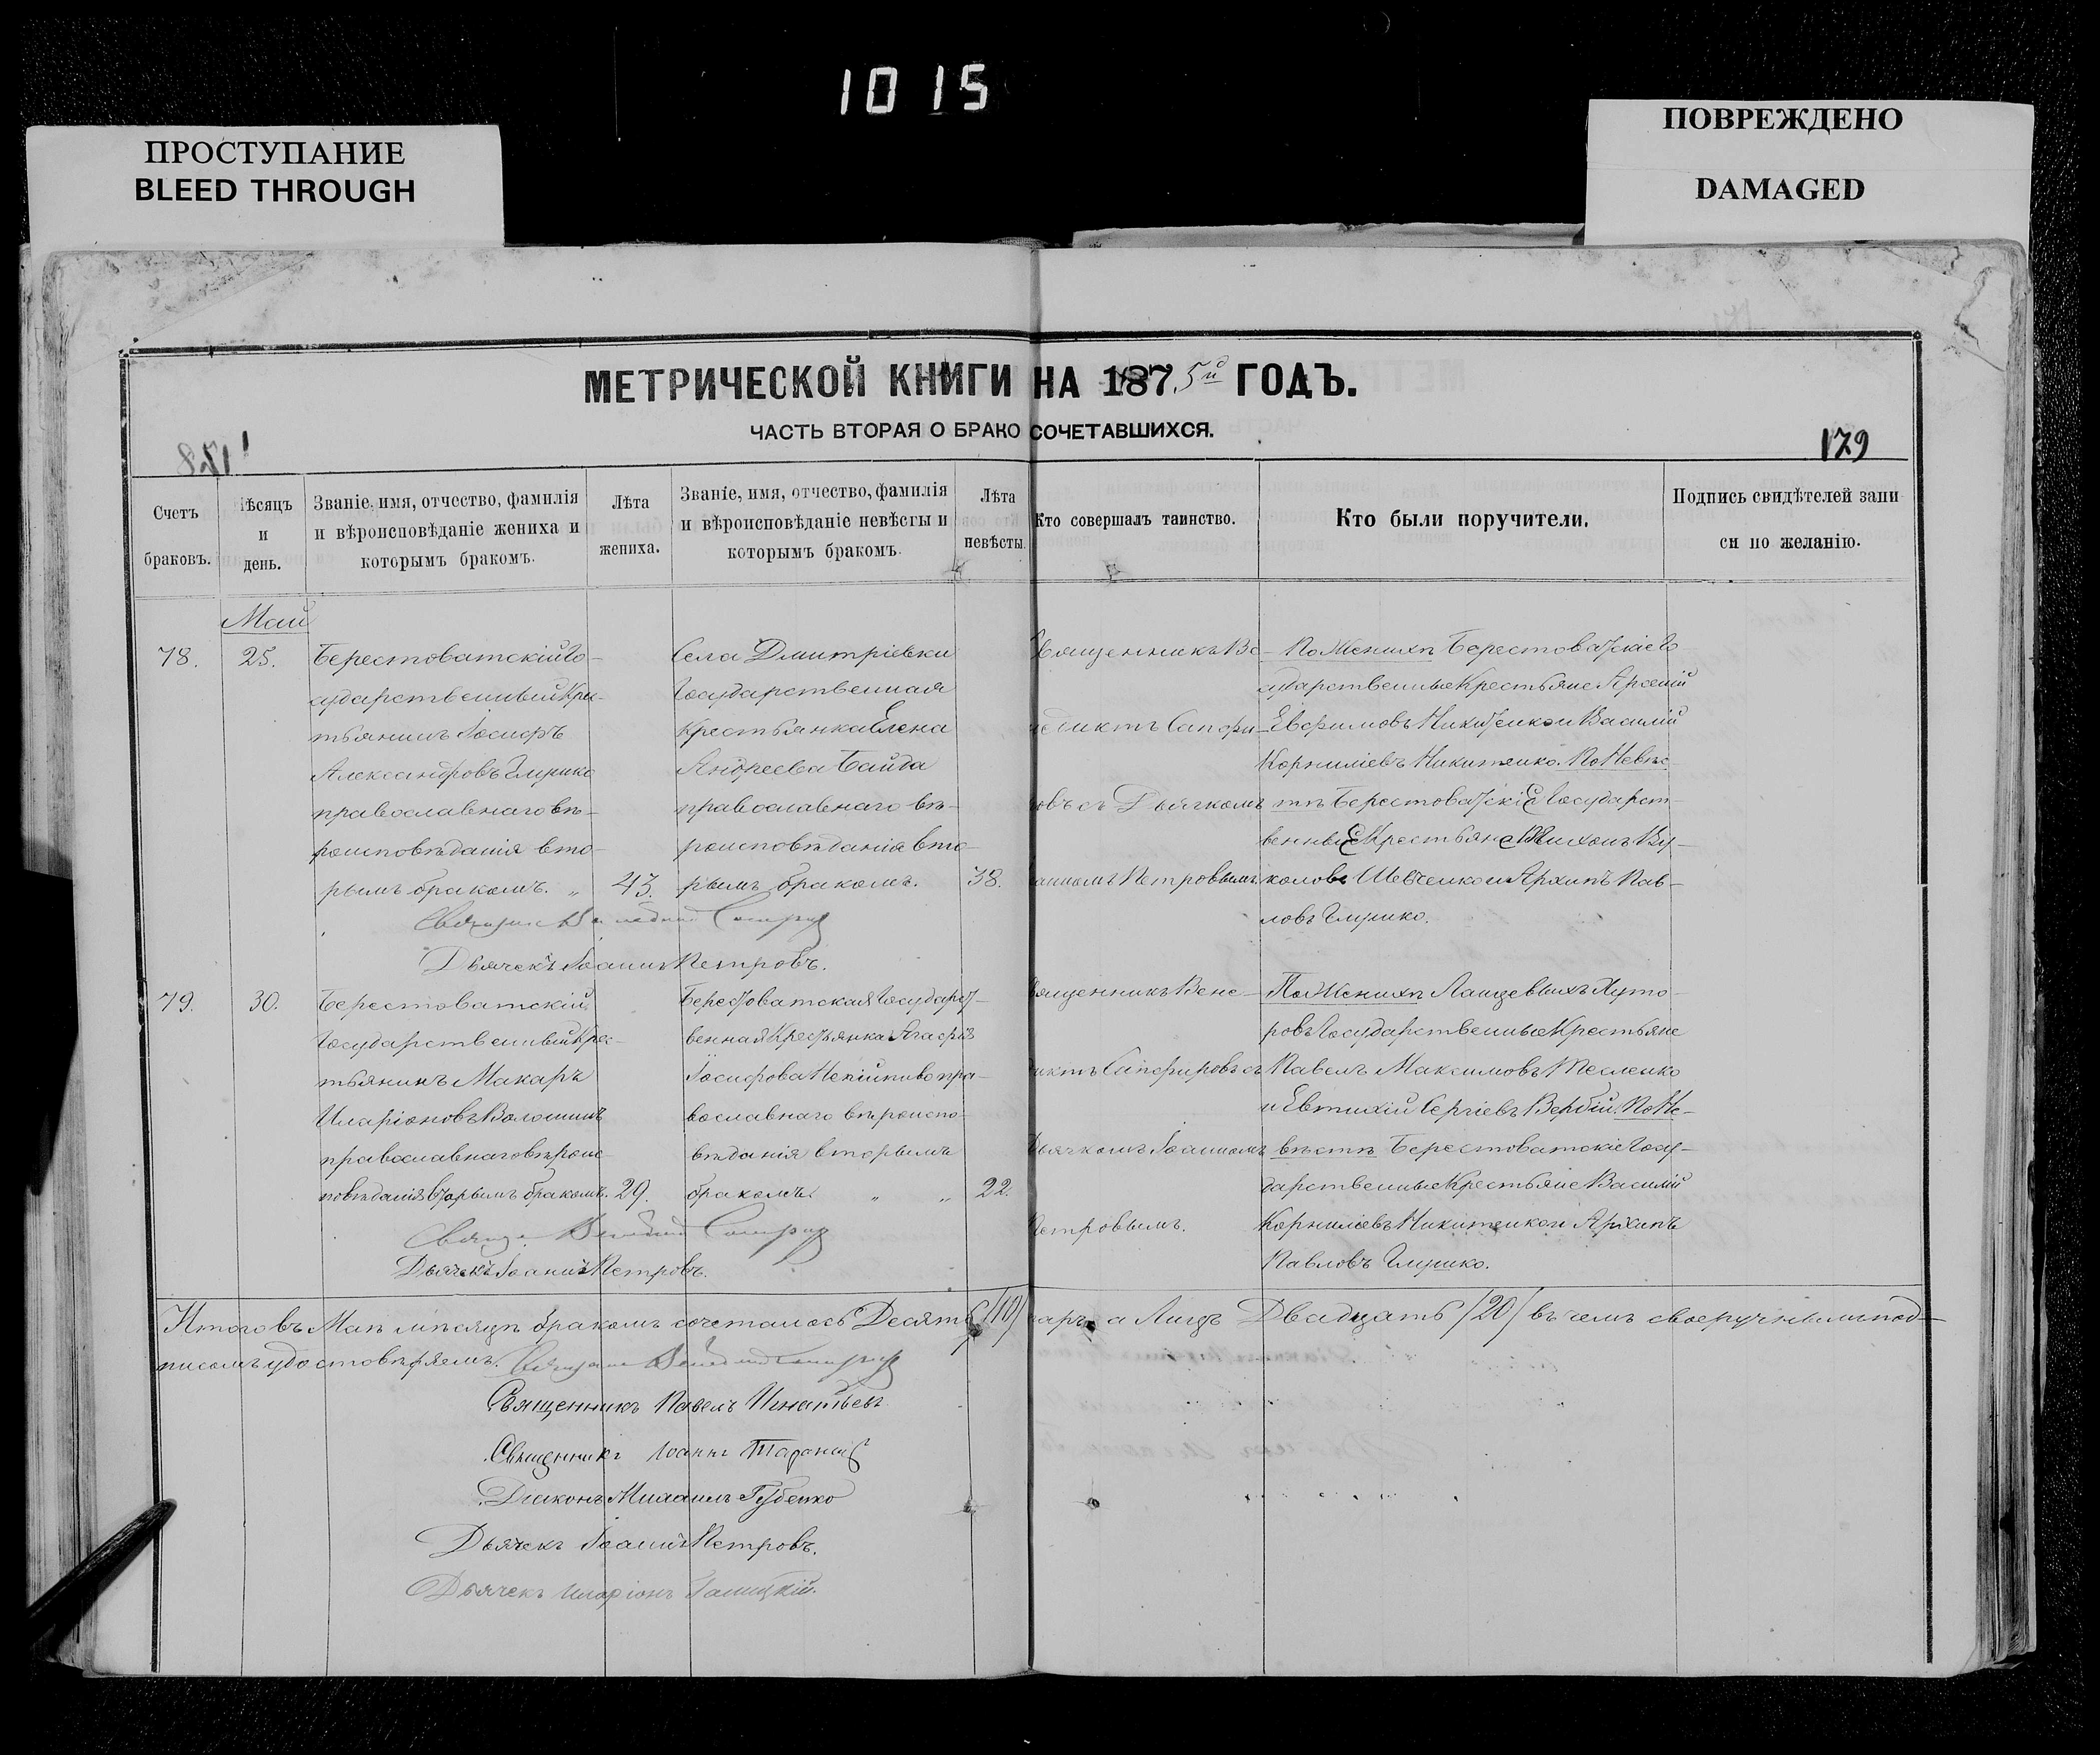 1015
ПРОСТУПАНИЕ
BLEED THROUGH
ПОВРЕЖДЕНО
DAMAGED
МЕТРИЧЕСКОЙ КНИГИ НА 187 5й ГОДЪ.
ЧАСТЬ ВТОРАЯ О БРАКО СОЧЕТАВШИХСЯ.
179
Счетъ
браковъ.
мѣсяцъ
и
день.
Званіе, имя, отчество, фамилія
и вѣроисповѣданіе жениха и
которымъ бракомъ.
Лѣта
жениха.
Званіе, имя, отчество, фамилія
и вѣроисповѣданіе невѣсты и
которымъ бракомъ.
Лѣта
невѣсты.
Кто совершалъ таинство.
Кто были поручители.
Подпись свидѣтелей запи
си по желанію.
Май
78.
25.
Берестоватскій Го-
сударственный Кре-
тьянинъ Іосифъ
Александровъ Глушко
православнаго вѣ-
роисповѣданія вто-
рымъ бракомъ. „
43.
Села Дмитріевки
Государственная
Крестьянка Елена
Андреева Байда
православнаго вѣ-
роисповѣданія вто-
рымъ бракомъ.
38.
Священникъ Ве-
недиктъ Сапфи-
ровъ съ Дьячкомъ
Іоанномъ Петровымъ.
По Женихѣ Берестоватскіе Го
сударственные Крестьяне Арсеній
Евфимовъ Никитенко и Василій
Корниліевъ Никитенко. По Невѣс
тѣ Берестоватскіе Государст-
венные Крестьяне
коловъ Шевченко и Архипъ Пав-
ловъ Глушко.
Дьячекъ Іоаннъ Петровъ.
79.
30.
Берестоватскій
Государственный Крес-
тьянинъ Макаръ
Иларіоновъ Волошинъ
православнаго вѣроис-
повѣданія вторымъ бракомъ.
29.
Берестоватская Государст-
венная Крестьянка Агафія
Іосифова пра-
вославнаго вѣроиспо-
вѣданія вторымъ
бракомъ. „ „
22.
Священникъ Вене-
диктъ Сапфировъ съ
Дьячкомъ Іоанномъ
Петровымъ.
По Женихѣ Ланцевыхъ Хуто-
ровъ Государственные Крестьяне
Павелъ Максимовъ Тесленко
и Евтихій Сергіевъ Вербій. По Не-
вѣстѣ Берестоватскіе Госу-
дарственные Крестьяне Василій
Корниліевъ Никитенко и Архипъ
Павловъ Глушко.
Дьячекъ Іоаннъ Петровъ.
Итого въ Маѣ мѣсяцѣ бракомъ сочеталось Десять /10/ паръ а Лицъ Двадцать /20/ въ чемъ своеручнымъ под-
писомъ удостовѣряемъ.
Священникъ Павелъ Игнатьевъ
Священникъ Іоаннъ
Діаконъ Михаилъ Губенко
Дьячекъ Іоаннъ Петровъ.
Дьячекъ Иларіонъ